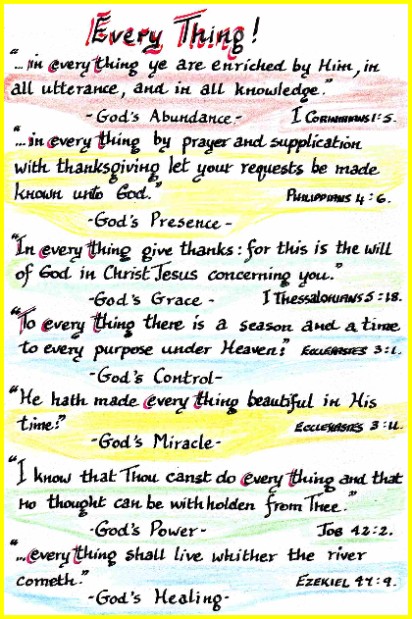 Every Thing!
"...in every thing ye are enriched by Him, in
all utterance, and in all knowledge."
- God's Abundance - I Corinthians 1:5.
"...in every thing by prayer and supplication
with thanksgiving let your requests be made
known unto God." Philippians 4:6.
- God's Presence -
"In every thing give thanks: for this is the will
of God in Christ Jesus concerning you."
- God's Grace - I Thessalonians 5:18.
"To every thing there is a season and a time
to every purpose under Heaven:" Ecclesiastes 3:1.
- God's Control -
"He hath made every thing beautiful in His
time:" Ecclesiastes 3:11.
- God's Miracle -
"I know that Thou canst do every thing and that
no thought can be withholden from Thee."
- God's Power - Job 42:2.
"...every thing shall live whither the river
cometh." Ezekiel 47:9.
- God's Healing -